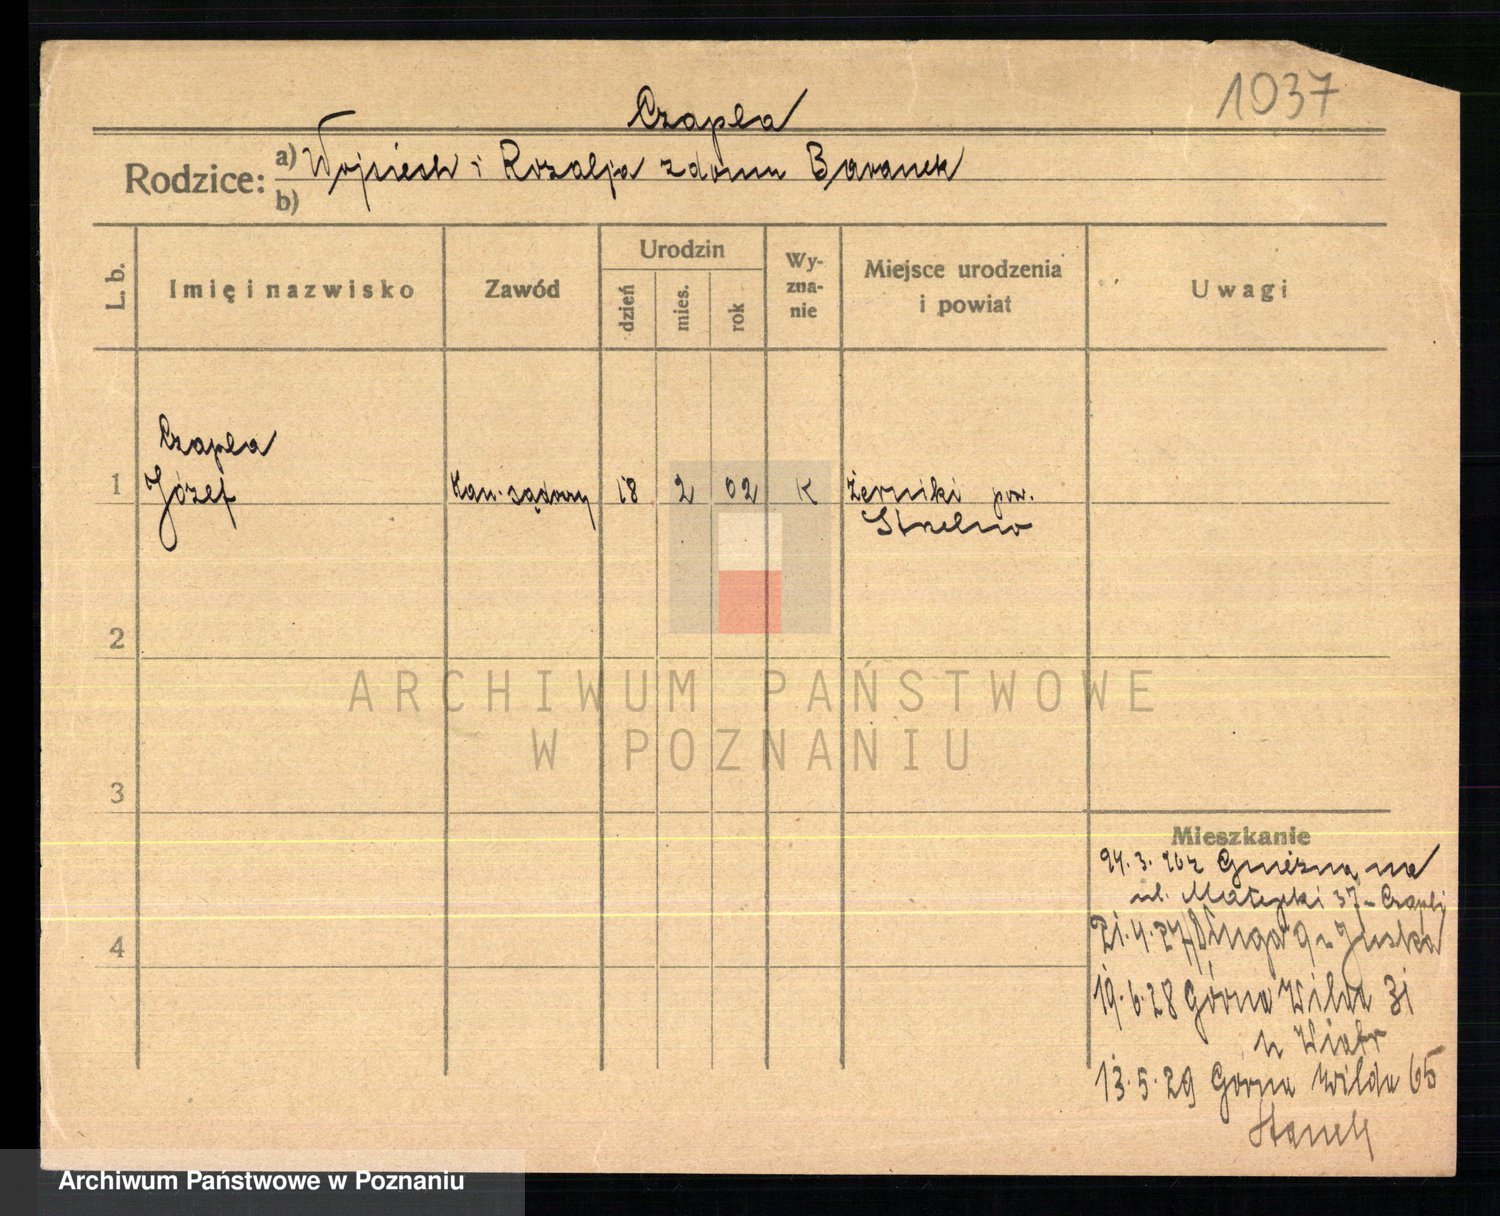 1037
Czapla
Rodzice: a) Wojciech i Rozalja z domu Baranek
b)
L. b.
Imię i nazwisko
Zawód
Urodzin
dzień
mies.
rok
Wy-
zna-
nie
Miejsce urodzenia
i powiat
Uwagi
Czapla
1 Józef kan. sądowy 18 2 02 K Żerniki pow.
Strzelno
2
ARCHIWUM PAŃSTWOWE
W POZNANIU
3
Mieszkanie
3. 26 z Gniezna na
ul. Matejki 37 u Czapli
4
21.4.27 Długa 9 u
19.6.28 Górna Wilda 31
u Wiatr
13.5.29 Górna Wilda 65
Archiwum Państwowe w Poznaniu